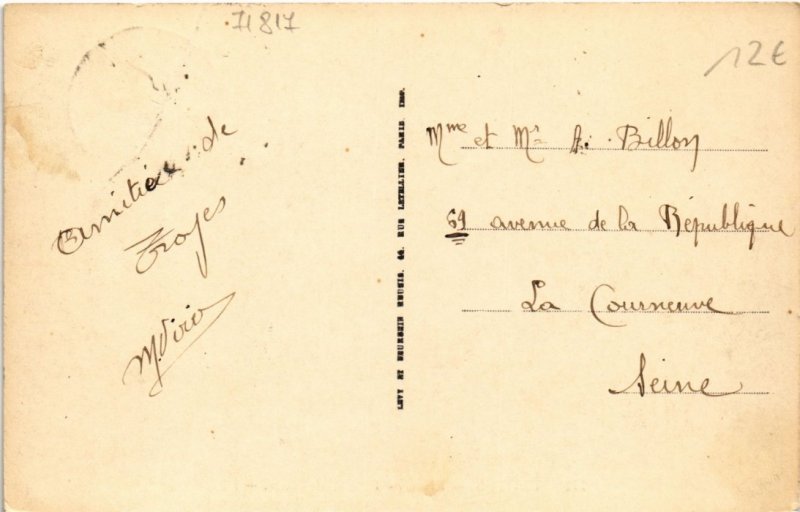 71817
12€
Amitiés de
Troyes
Mme et Mr A. Billon
69 avenue de la République
La Courneuve
Seine
LEVY ET NEURDEIN REUNIS, 44, RUE LETELLIER, PARIS IMP.